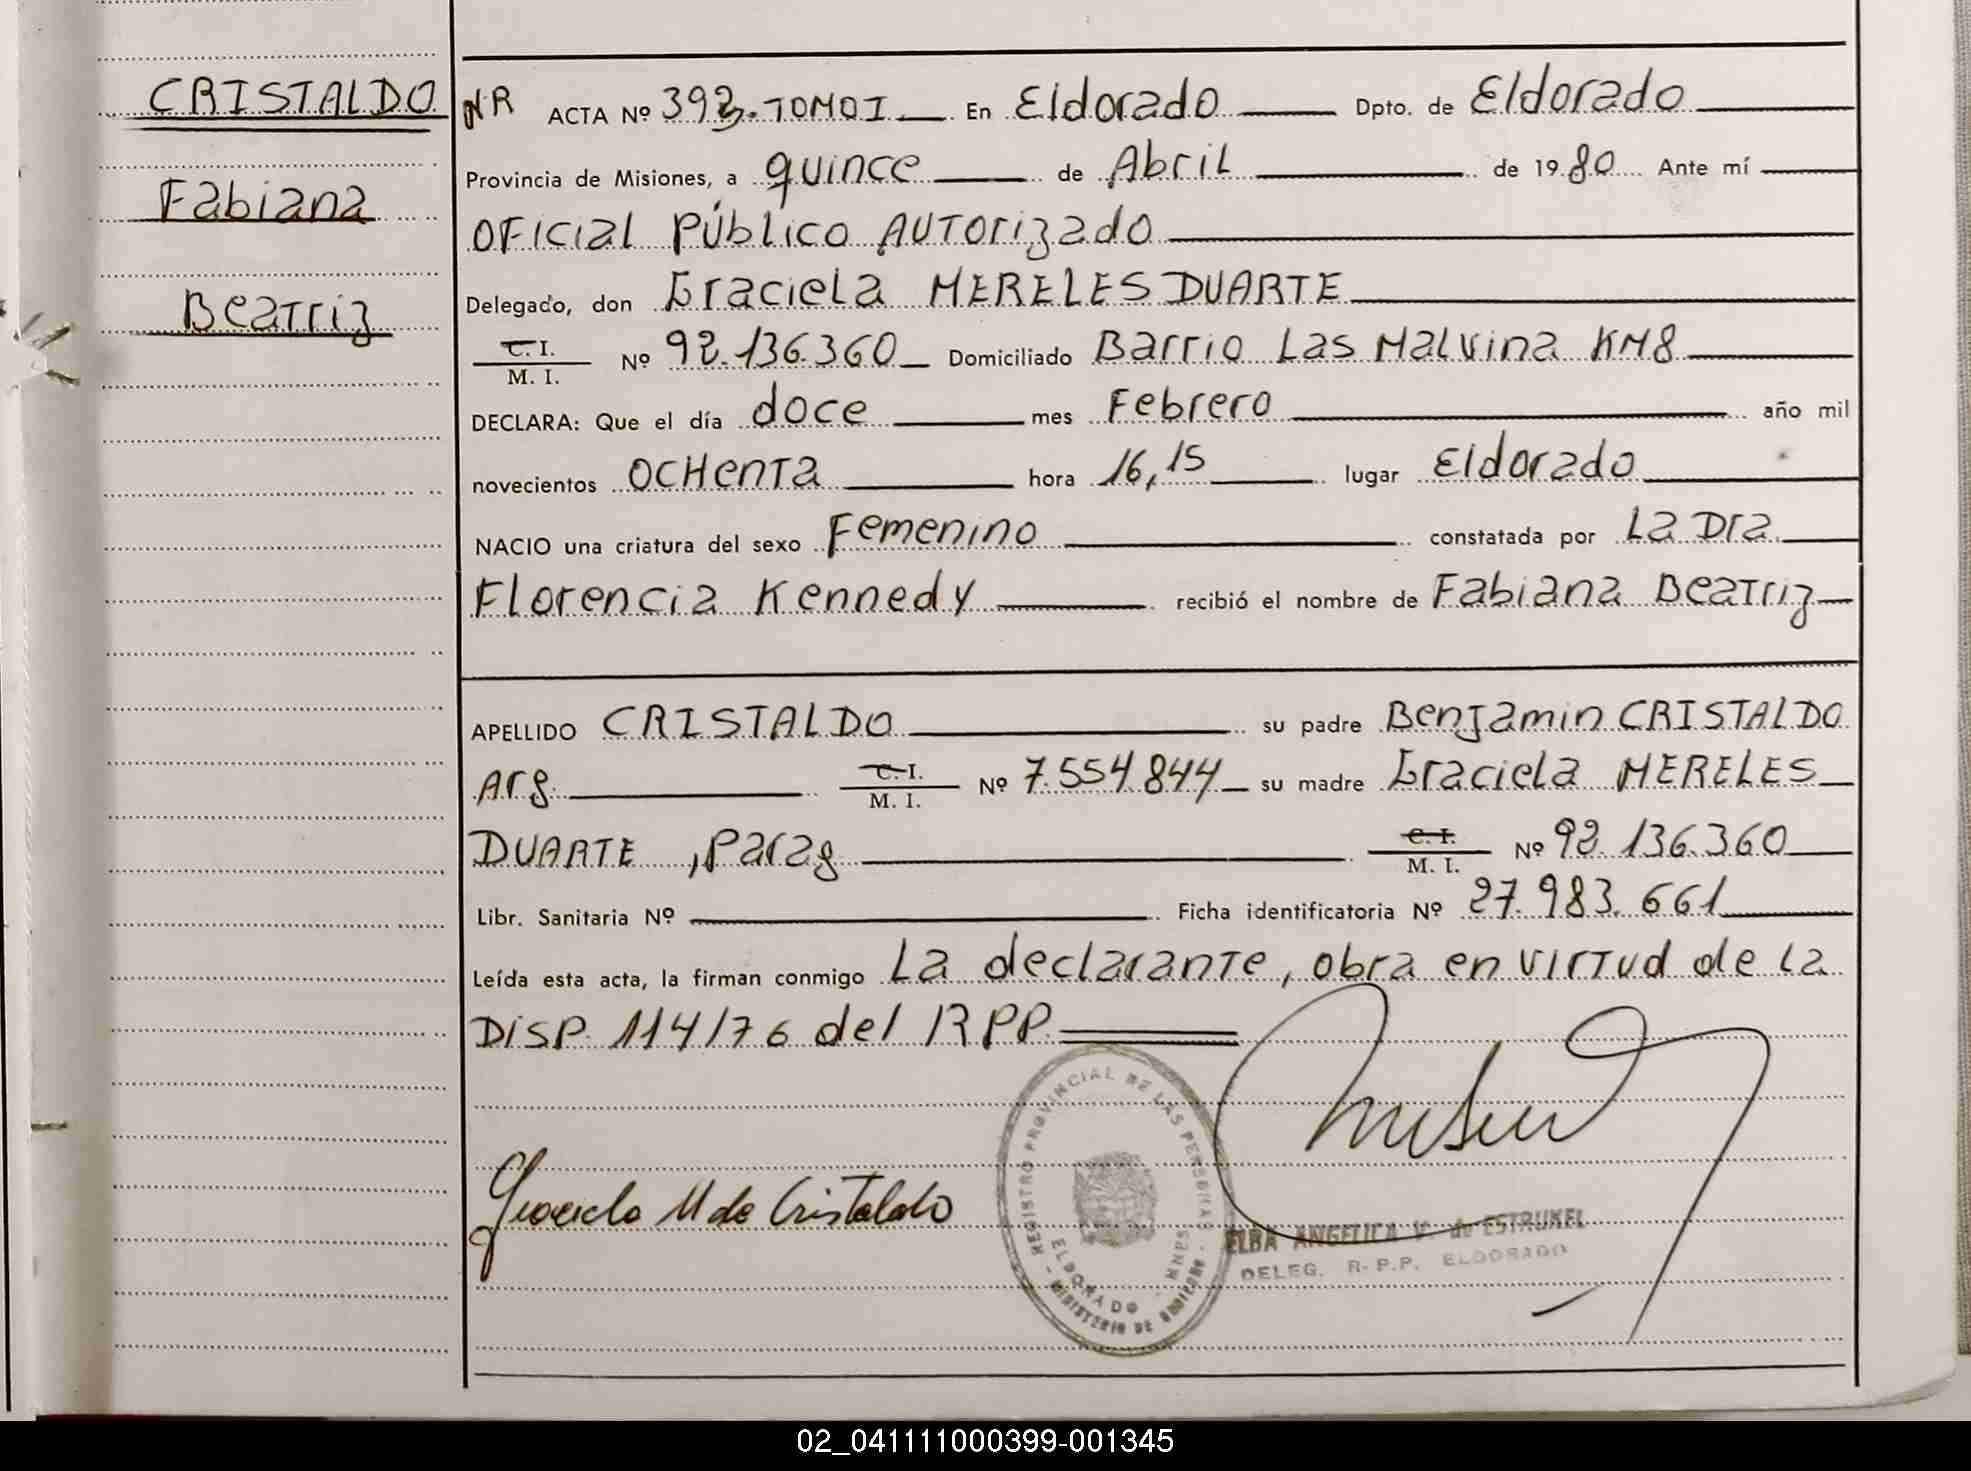 CRISTALDO
Fabiana
Beatriz
NR ACTA Nº 393. TOMO I En Eldorado Dpto. de Eldorado
Provincia de Misiones, a quince de Abril de 1980 Ante mí
Oficial Público Autorizado
Delegado, don Graciela MERELES DUARTE
C. I.
M. I. Nº 92.136.360 Domiciliado Barrio Las Malvina KM8
DECLARA: Que el día doce mes Febrero año mil
novecientos OCHENTA hora 16,15 lugar Eldorado
NACIO una criatura del sexo Femenino constatada por La Dra
Florencia Kennedy recibió el nombre de Fabiana Beatriz
APELLIDO CRISTALDO su padre Benjamin CRISTALDO
Arg. C. I.
M. I. Nº 7.554.844 su madre Graciela MERELES
DUARTE, parag C. I.
M. I. Nº 92.136.360
Libr. Sanitaria Nº Ficha identificatoria Nº 27.983.661
Leída esta acta, la firman conmigo La declarante, obra en virtud de la
DISP. 114/76 del RPP.
Graciela M de Cristaldo
REGISTRO PROVINCIAL DE LAS PERSONAS
ELDORADO - MNES
MINISTERIO DE GOBIERNO
ELBA ANGELICA V. de ESTRUKEL
DELEG. R.P.P. ELDORADO
02_041111000399-001345